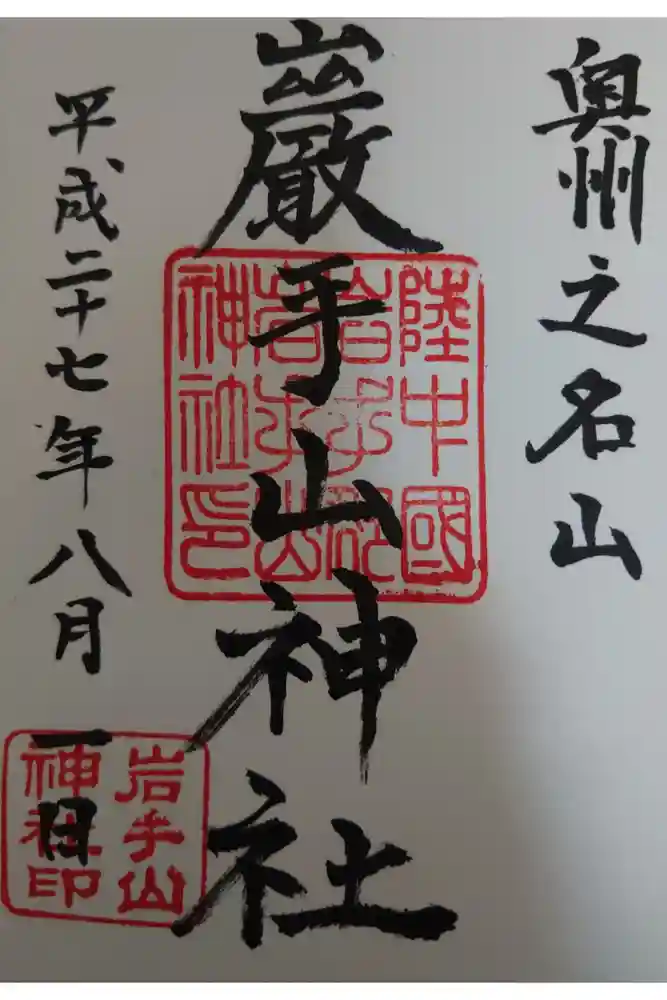 奥州之名山
巖手山神社
平成二十七年八月一日
陸中國
岩手郡
岩手山
神社印
岩手山
神社印